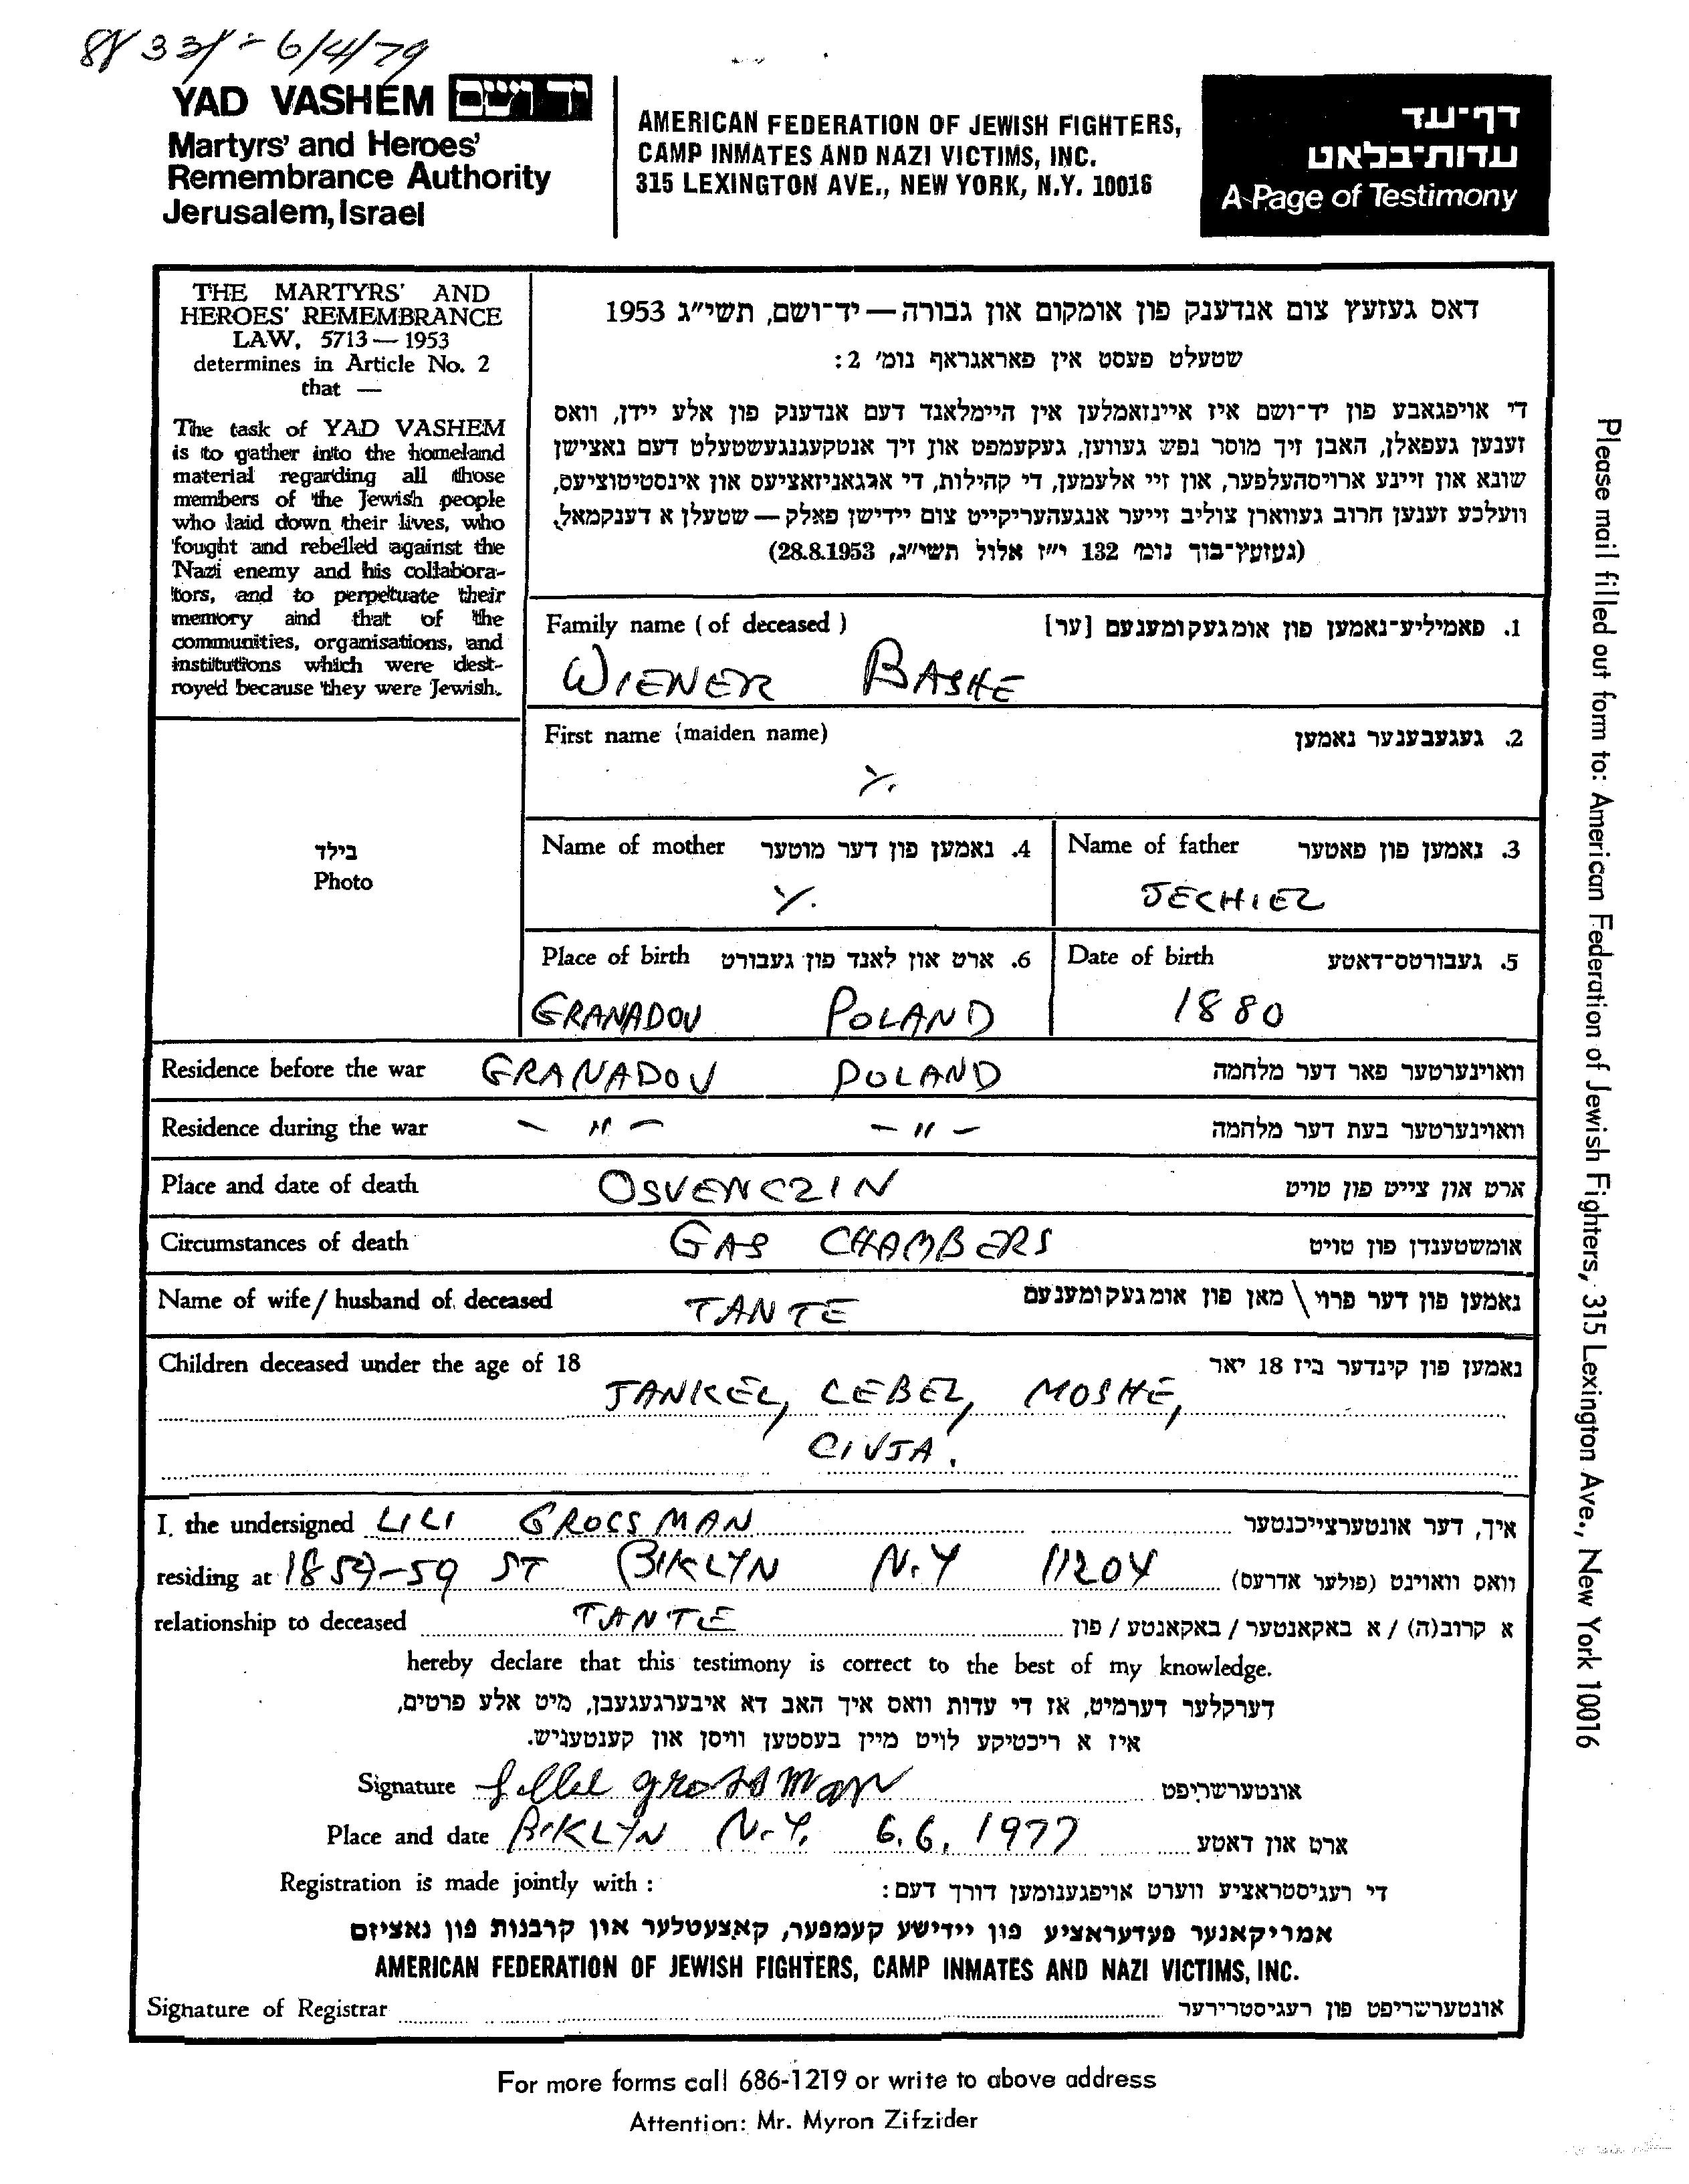 6/4/79
YAD VASHEM יד ושם
Martyrs' and Heroes'
Remembrance Authority
Jerusalem, Israel
AMERICAN FEDERATION OF JEWISH FIGHTERS,
CAMP INMATES AND NAZI VICTIMS, INC.
315 LEXINGTON AVE., NEW YORK, N.Y. 10016
דף-עד
עדות-בלאט
A Page of Testimony
THE MARTYRS' AND
HEROES' REMEMBRANCE
LAW, 5713—1953
determines in Article No. 2
that —
The task of YAD VASHEM
is to gather into the homeland
material regarding all those
members of the Jewish people
who laid down their lives, who
fought and rebelled against the
Nazi enemy and his collabora-
tors, and to perpetuate their
memory and that of the
communities, organisations, and
institutions which were dest-
royed because they were Jewish.
דאס געזעץ צום אנדענק פון אומקום און גבורה — יד-ושם, תשי״ג 1953
שטעלט פעסט אין פאראגראף נומ׳ 2:
די אויפגאבע פון יד-ושם איז איינזאמלען אין היימלאנד דעם אנדענק פון אלע יידן, וואס
זענען געפאלן, האבן זיך מוסר נפש געווען, געקעמפט און זיך אנטקעגנגעשטעלט דעם נאצישן
שונא און זיינע ארויסהעלפער, און זיי אלעמען, די קהילות, די ארגאניזאציעס און אינסטיטוציעס,
וועלכע זענען חרוב געווארן צוליב זייער אנגעהעריקייט צום יידישן פאלק — שטעלן א דענקמאל.
(געזעץ-בוך נומ׳ 132 י״ז אלול תשי״ג, 28.8.1953)
Family name (of deceased) 1. פאמיליע-נאמען פון אומגעקומענעם [ער]
WIENER BASHE
First name (maiden name) 2. געגעבענער נאמען
בילד
Photo
Name of mother 4. נאמען פון דער מוטער Name of father 3. נאמען פון פאטער
JECHIEL
Place of birth 6. ארט און לאנד פון געבורט Date of birth 5. געבורטס-דאטע
GRANADOV POLAND 1880
Residence before the war GRANADOV POLAND וואוינערטער פאר דער מלחמה
Residence during the war — " — — " — וואוינערטער בעת דער מלחמה
Place and date of death OSVENCZIN ארט און צייט פון טויט
Circumstances of death GAS CHAMBERS אומשטענדן פון טויט
Name of wife / husband of deceased TANTE נאמען פון דער פרוי \ מאן פון אומגעקומענעם
Children deceased under the age of 18 נאמען פון קינדער ביז 18 יאר
JANKEL, LEBEL, MOSHE,
CIVJA.
I, the undersigned LILI GROSSMAN איך, דער אונטערצייכנטער
residing at 1859-59 ST BKLYN N.Y 11204 וואס וואוינט (פולער אדרעס)
relationship to deceased TANTE א קרוב(ה) / א באקאנטער / באקאנטע / פון
hereby declare that this testimony is correct to the best of my knowledge.
דערקלער דערמיט, אז די עדות וואס איך האב דא איבערגעגעבן, מיט אלע פרטים,
איז א ריכטיקע לויט מיין בעסטען וויסן און קענטעניש.
Signature grossman אונטערשריפט
Place and date BKLYN N.Y. 6.6.1977 ארט און דאטע
Registration is made jointly with : די רעגיסטראציע ווערט אויפגענומען דורך דעם:
אמריקאנער פעדעראציע פון יידישע קעמפער, קאצעטלער און קרבנות פון נאציזם
AMERICAN FEDERATION OF JEWISH FIGHTERS, CAMP INMATES AND NAZI VICTIMS, INC.
Signature of Registrar אונטערשריפט פון רעגיסטרירער
For more forms call 686-1219 or write to above address
Attention: Mr. Myron Zifzider
Please mail filled out form to: American Federation of Jewish Fighters, 315 Lexington Ave., New York 10016